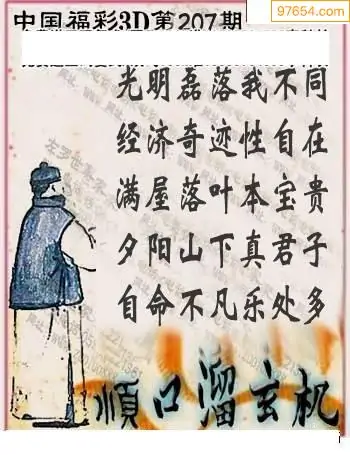 97654.com
中国福彩3D第207期
光明磊落我不同
经济奇迹性自在
满屋落叶本宝贵
夕阳山下真君子
自命不凡乐处多
顺口溜玄机